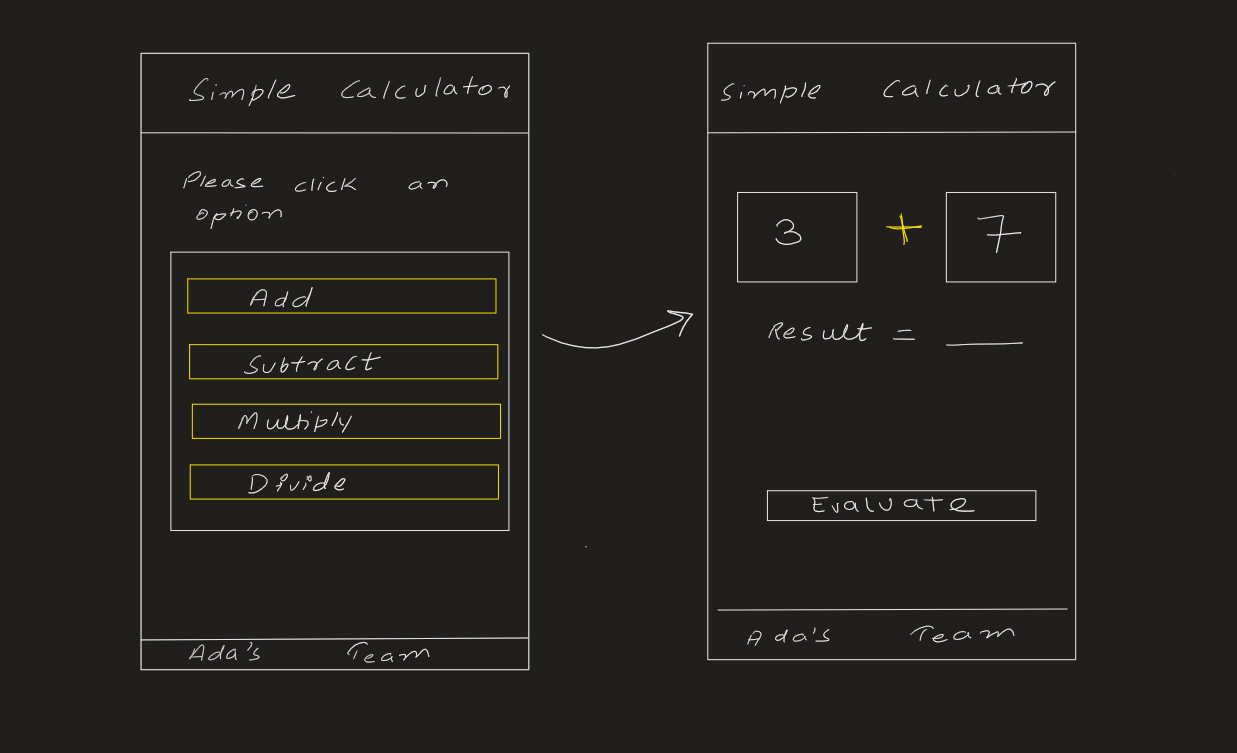 Simple Calculator
Please click an
option
Add
Subtract
Multiply
Divide
Ada's Team
Simple Calculator
3 + 7
Result = ____
Evaluate
Ada's Team